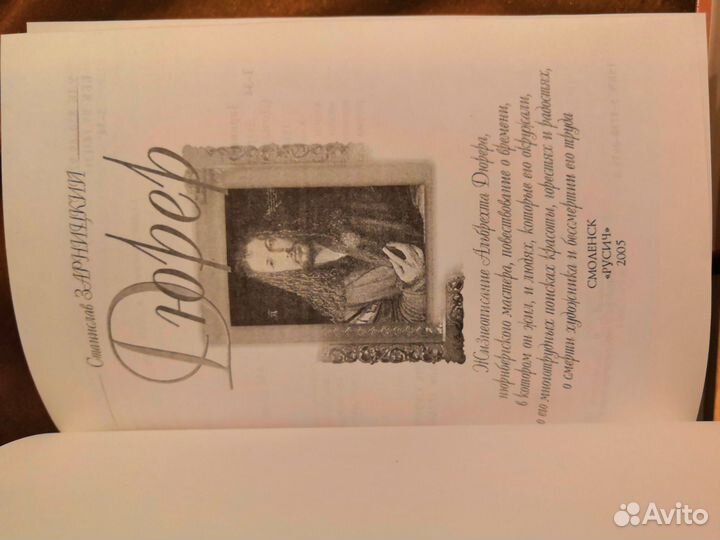 Станислав ЗАРНИЦКИЙ
Дюрер
Жизнеописание Альбрехта Дюрера,
нюрнбергского мастера, повествование о времени,
в котором он жил, и людях, которые его окружали,
о его многотрудных поисках красоты, горестях и радостях,
о смерти художника и бессмертии его труда
СМОЛЕНСК
«РУСИЧ»
2005
Avito